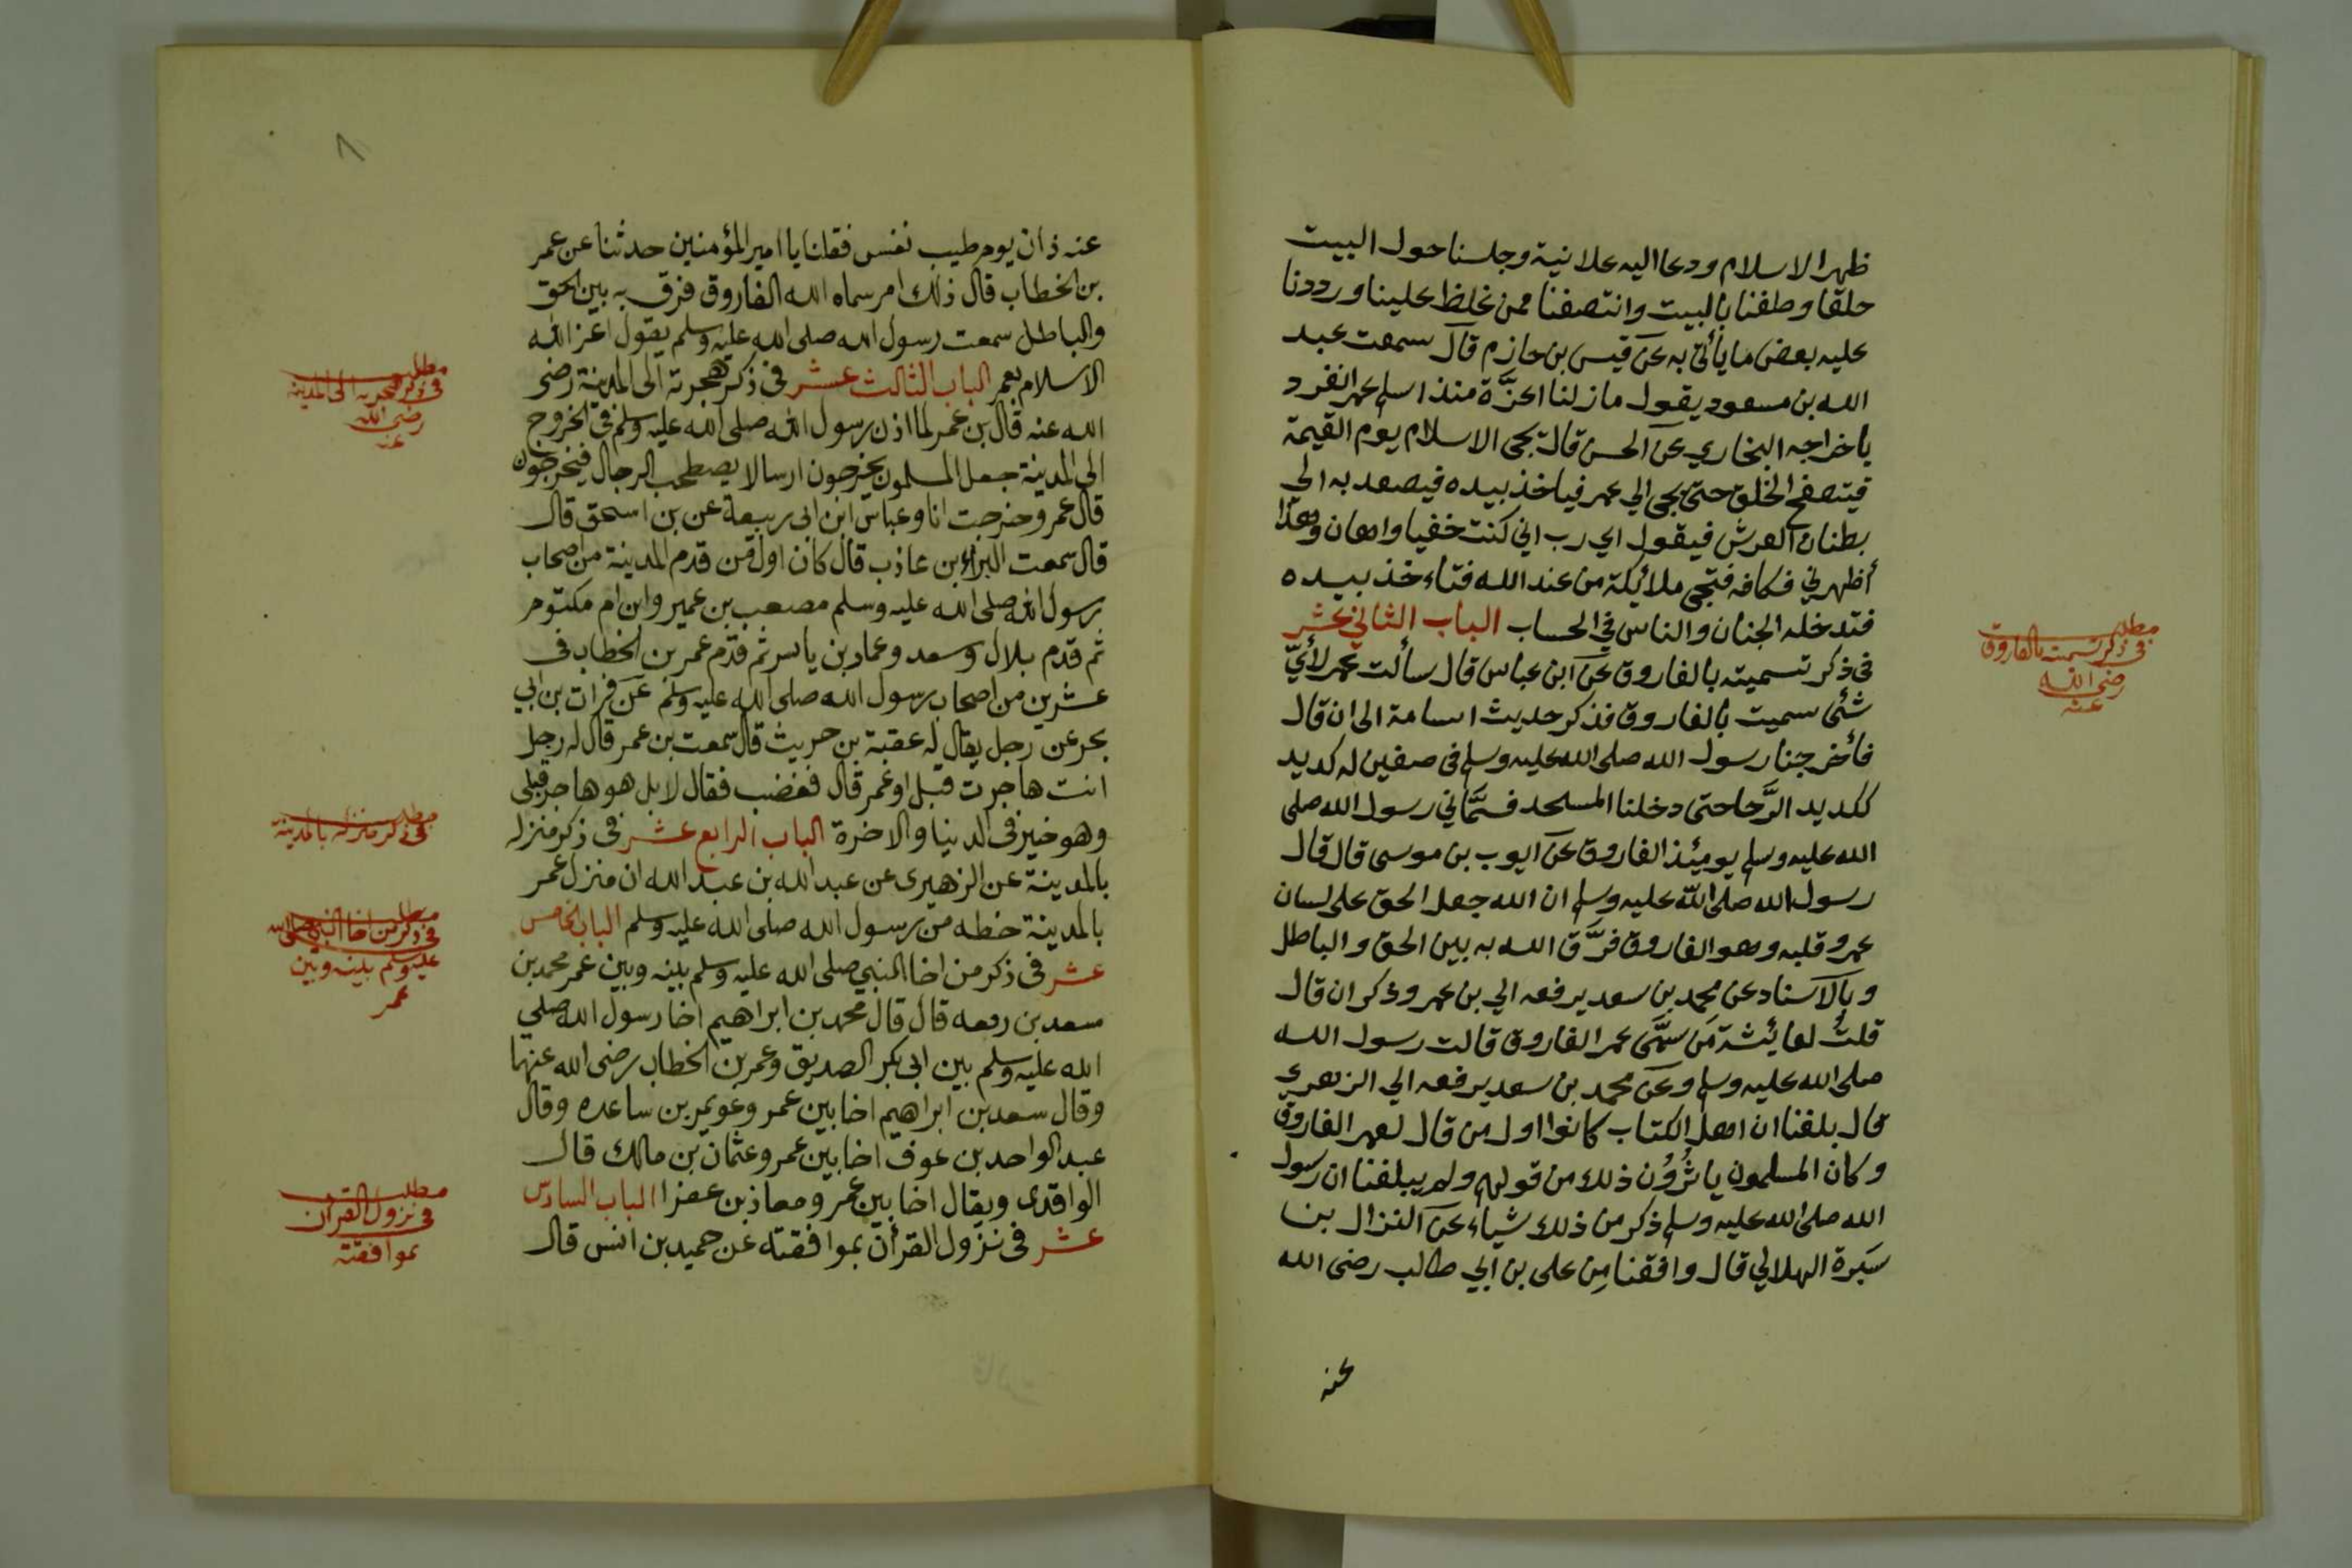 ظهر الاسلام ودعا اليه علانية وجلسنا حول البيت
حلقا وطفنا بالبيت وانتصفنا ممن غلظ علينا ورددنا
عليه بعض ما يأتى به عن قيس بن حازم قال سمعت عبد
الله بن مسعود يقول ما زلنا اعزَّة منذ اسلم عمر انفرد
باخراجه البخاري عن الحسن قال يجى الاسلام يوم القيمة
فيتصفح الخلق حتى يجى الي عمر فياخذ بيده فيصعد به الي
بطنان العرش فيقول اي رب اني كنت خفيا واهان وهذا
أظهرني فكافه فتجى ملائكة من عند الله فتاءخذ بيده
فتدخله الجنان والناس في الحساب الباب الثاني عشر
فى ذكر تسميته بالفاروق عن ابن عباس قال سألت عمر لأيّ
شئى سميت بالفاروق فذكر حديث اسامة الى ان قال
فأخرجنا رسول الله صلى الله عليه وسلم فى صفين له كديد
ككديد الرَّحا حتى دخلنا المسجد فسمَّاني رسول الله صلى
الله عليه وسلم يومئذ الفاروق عن ايوب بن موسى قال قال
رسول الله صلى الله عليه وسلم ان الله جعل الحق على لسان
عمر وقلبه وهو الفاروق فرَّق الله به بين الحق والباطل
وبالاسناد عن محمد بن سعد يرفعه الي بن عمر وذكر ان قال
قلتُ لعائشة مَن سمَّى عمر الفاروق قالت رسول الله
صلى الله عليه وسلم وعن محمد بن سعد يرفعه الي الزهري
قال بلغنا ان اهل الكتاب كانوا اول من قال لعمر الفاروق
وكان المسلمون ياثرُوُن ذلك من قولهم ولم يبلغنا ان رسول
الله صلى الله عليه وسلم ذكر من ذلك شياء عن النزال بن
سَبرة الهلالي قال وافقنا مِن على بن ابي طالب رضى الله
عنه
مطلب
فى ذكر تسميته بالفاروق
رضى الله
عنه
٨
عنه ذات يوم طيب نفس فقلنا يا امير المؤمنين حدثنا عن عمر
بن الخطاب قال ذلك امر سماه الله الفاروق فرق به بين الحق
والباطل سمعت رسول الله صلى الله عليه وسلم يقول اعز الله
الاسلام بعمر الباب الثالث عشر فى ذكر هجرته الى المدينة رضى
الله عنه قال بن عمر لما اذن رسول الله صلى الله عليه وسلم فى الخروج
الى المدينة جعل المسلمون يخرجون ارسالا يصطحب الرجال فيخرجون
قال عمر وخرجت انا وعباس ابن ابى ربيعة عن بن اسحق قال
قال سمعت البراء بن عاذب قال كان اول من قدم المدينة من اصحاب
رسول الله صلى الله عليه وسلم مصعب بن عمير وابن ام مكتوم
ثم قدم بلال وسعد وعمار بن ياسر ثم قدم عمر بن الخطاب فى
عشرين من اصحاب رسول الله صلى الله عليه وسلم عن فرات بن ابي
بحر عن رجل يقال له عقبة بن حريث قال سمعت بن عمر قال له رجل
انت هاجرت قبل او عمر قال فغضب فقال لا بل هو هاجر قبلى
وهو خير فى الدنيا والاخرة الباب الرابع عشر فى ذكر منزله
بالمدينة عن الزهيرى عن عبد الله بن عبد الله ان منزل عمر
بالمدينة خطه من رسول الله صلى الله عليه وسلم الباب الخامس
عشر فى ذكر من اخا النبي صلى الله عليه وسلم بينه وبين عمر محمد بن
سعد بن رفعه قال قال محمد بن ابراهيم اخا رسول الله صلي
الله عليه وسلم بين ابى بكر الصديق وعمر بن الخطاب رضى الله عنهما
وقال سعد بن ابراهيم اخا بين عمر وعويمر بن ساعده وقال
عبد الواحد بن عوف اخا بين عمر وعثمان بن مالك قال
الواقدى ويقال اخا بين عمر ومعاذ بن عفرا الباب السادس
عشر فى نزول القرأن بموافقته عن حميد بن انس قال
مطلب
فى ذكر هجرته الى المدينة
رضى الله
عنه
مطلب
فى ذكر منزله بالمدينة
مطلب
فى ذكر من اخا النبي صلى الله
عليه وسلم بينه وبين
عمر
مطلب
فى نزول القرأن
بموافقته